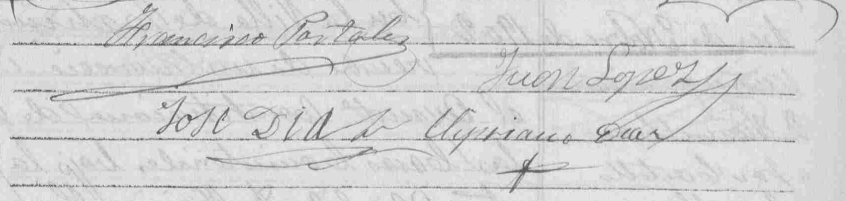 Francisco Portales
Juan Lopez
Jose Diaz Cypriano Diaz